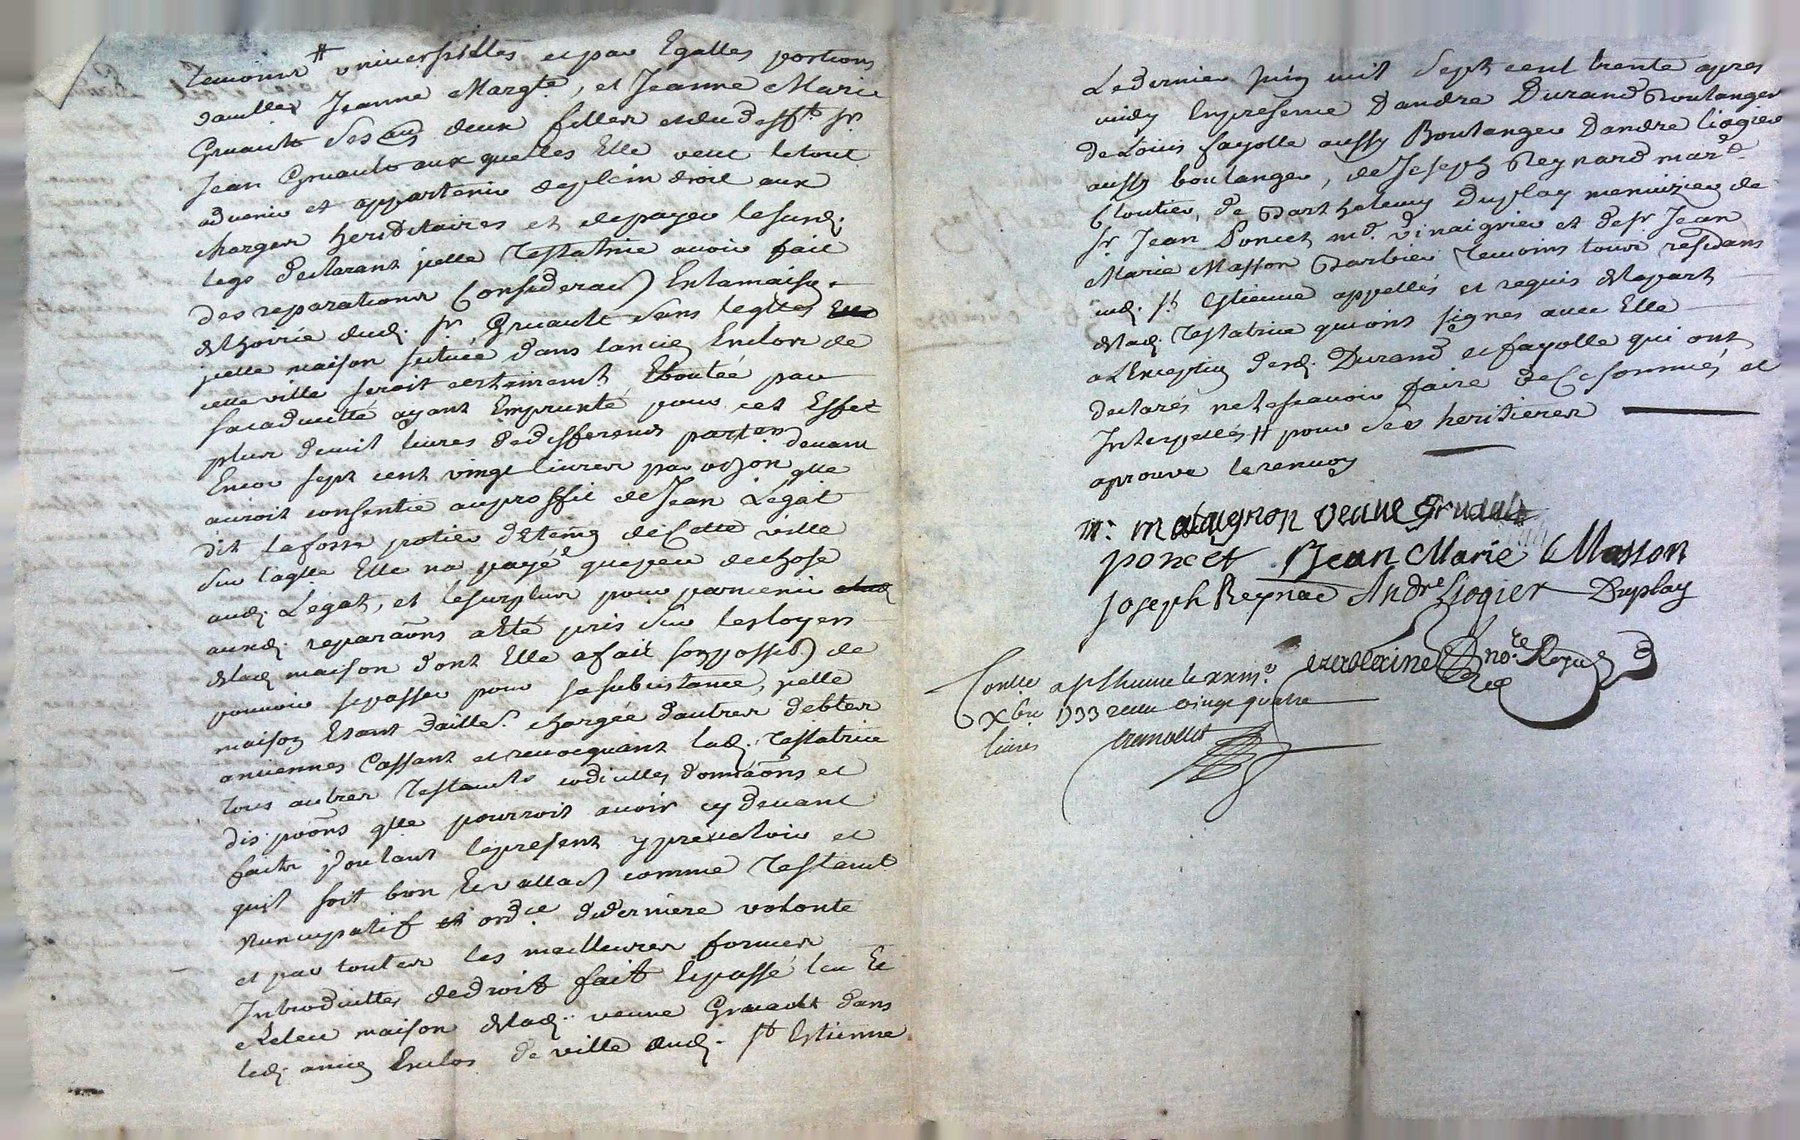 temoins # universelles et par Egalles portions
dam.lles Jeanne Marg.te, et Jeanne Marie
Gruault ses deux filles et dud deff.t s.r
Jean Gruault aux quelles Elle veut le tout
advenir et appartenir de plein droit aux
charges hereditaires et de payer lesurd.
legs declarant jcelle Testatrice avoir fait
des reparations Considerables En la maison
de l'hoirie dud. s.r Gruault sans lesq.lles
jcelle maison scituée dans lancien Enclos de
cette ville seroit entierement Eboulée par
sa caducitté ayant Emprunté pour cet Effet
plus de mil livres de differents part.ers devant
Encor sept cent vingt livres par oblon q.lle
auroit consentie au proffit de Jean Légat
dit Lafosse potier d'Etaing de Cette ville
sur laq.lle Elle na payé que peu de chose
aud. Légat, et le surplus pour parvenir
auxd. reparaõns a Eté pris sur les loyers
de lad. maison dont Elle a fait son possible de
pouvoir se passer pour sa subsistance, jcelle
maison Etant d'aille.rs chargée d'autres debtes
anciennes Cassant et revocquant lad. Testatrice
tous autres Testam.ts codicilles donnaõns et
dispoõns q.lle pourroit avoir cy devant
faits voulant le present y prevaloir et
quil soit bon Et vallable comme Testam.t
Nuncupatif et ord.ce de derniere volonte
et par toutes les meilleures formes
Introduittes de droit fait Et passé leu Et
releu maison de lad. veuve Gruault dans
led. ancien Enclos de ville dud. S.t Estienne
Le dernier Juin mil Sept cent trente apres
midy En presence D'andre Durand Boulanger
de Louis fayolle aussy Boulanger D'andre Liogier
aussy boulanger, de Joseph Reynard mar.d
Cloutier, de Barthelemy Duplay menuizier de
s.r Jean Poncet m.d vinaigrier et de s.r Jean
Marie Masson Barbier temoins tous residans
aud. S.t Estienne appellés et requis de la part
de lad. Testatrice qui ont signés avec Elle
a L'Exception desd. Durand et fayolle qui ont
declarés ne le scavoir faire de Ce sommés et
Interpellés # pour ses heritieres
aprouve le renvoy
M. matagnon veuve Gruault
poncet Jean Marie Masson
Joseph Reynard André Liogier Duplay
no.re Royal
Con.llé a S.t Etienne le xxiii.e
Xbre 1733 receu vingt quatre
livres